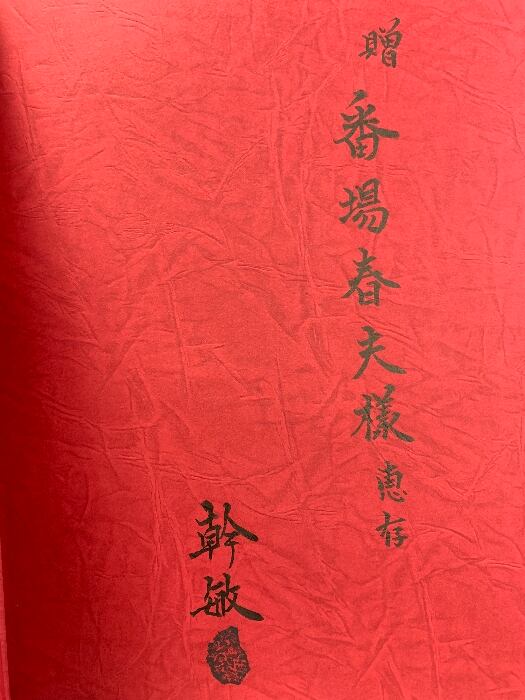 贈 番場春夫様 惠存
幹敏